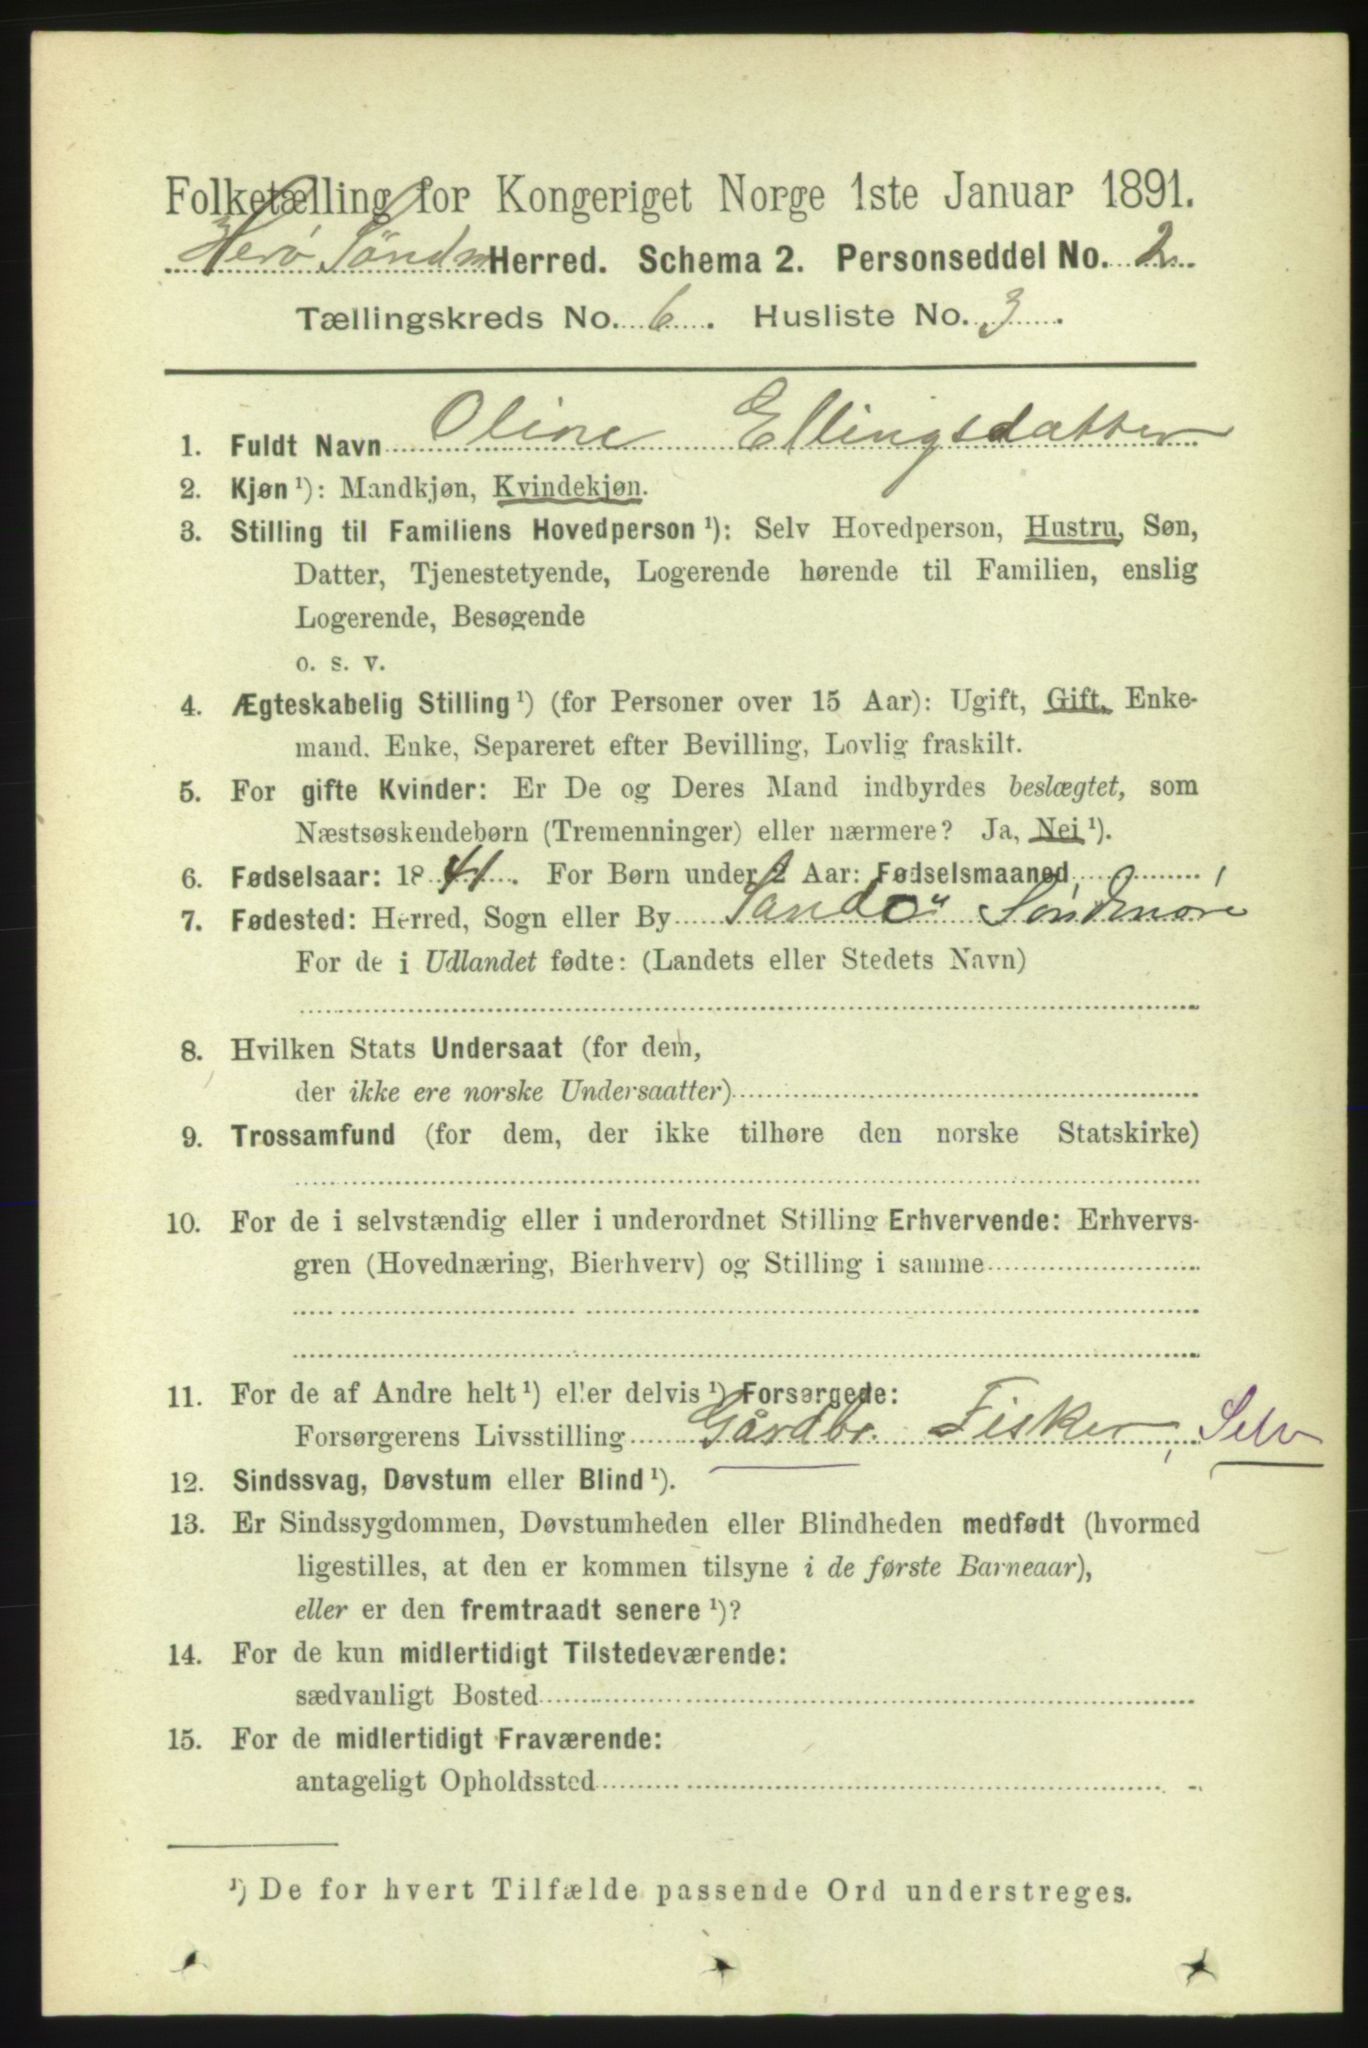 Folketælling for Kongeriget Norge 1ste Januar 1891.
Herø Söndm Herred. Schema 2. Personseddel No. 2
Tællingskreds No. 6. Husliste No. 3.
1. Fuldt Navn Oline Ellingsdatter
2. Kjøn ¹): Mandkjøn, Kvindekjøn.
3. Stilling til Familiens Hovedperson ¹): Selv Hovedperson, Hustru, Søn,
Datter, Tjenestetyende, Logerende hørende til Familien, enslig
Logerende, Besøgende
o. s. v.
4. Ægteskabelig Stilling ¹) (for Personer over 15 Aar): Ugift, Gift, Enke-
mand. Enke, Separeret efter Bevilling, Lovlig fraskilt.
5. For gifte Kvinder: Er De og Deres Mand indbyrdes beslægtet, som
Næstsøskendebørn (Tremenninger) eller nærmere? Ja, Nei ¹).
6. Fødselsaar: 1841. For Børn under 2 Aar: Fødselsmaaned
7. Fødested: Herred, Sogn eller By Sandö, Söndmöre
For de i Udlandet fødte: (Landets eller Stedets Navn)
8. Hvilken Stats Undersaat (for dem,
der ikke ere norske Undersaatter)
9. Trossamfund (for dem, der ikke tilhøre den norske Statskirke)
10. For de i selvstændig eller i underordnet Stilling Erhvervende: Erhvervs-
gren (Hovednæring, Bierhverv) og Stilling i samme
11. For de af Andre helt ¹) eller delvis ¹) Forsørgede:
Forsørgerens Livsstilling Gårdbr. Fisker, Selv
12. Sindssvag, Døvstum eller Blind ¹).
13. Er Sindssygdommen, Døvstumheden eller Blindheden medfødt (hvormed
ligestilles, at den er kommen tilsyne i de første Barneaar),
eller er den fremtraadt senere ¹)?
14. For de kun midlertidigt Tilstedeværende:
sædvanligt Bosted
15. For de midlertidigt Fraværende:
antageligt Opholdssted
¹) De for hvert Tilfælde passende Ord understreges.